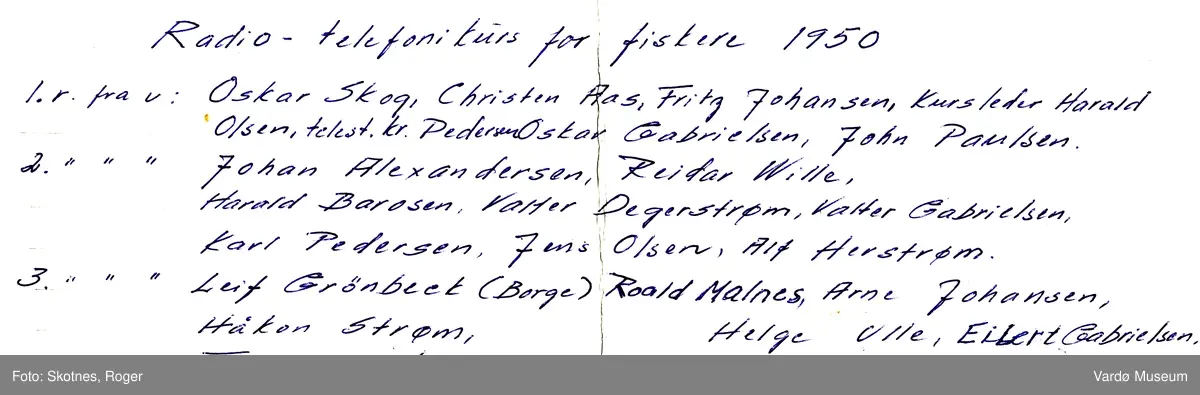 Radio - telefonikurs for fiskere 1950
1. r. fra v: Oskar Skog, Christen Aas, Fritz Johansen, Kursleder Harald
Olsen, telest. kr. Pedersen Oskar Gabrielsen, John Paulsen.
2. " " " Johan Alexandersen, Reidar Wille,
Harald Barosen, Valter Degerstrøm, Valter Gabrielsen,
Karl Pedersen, Jens Olsen, Alf Herstrøm.
3. " " " Leif Grönbeck (Borge) Roald Malnes, Arne Johansen,
Håkon Strøm, Helge Ulle, Eilert Gabrielsen.
Foto: Skotnes, Roger
Vardø Museum